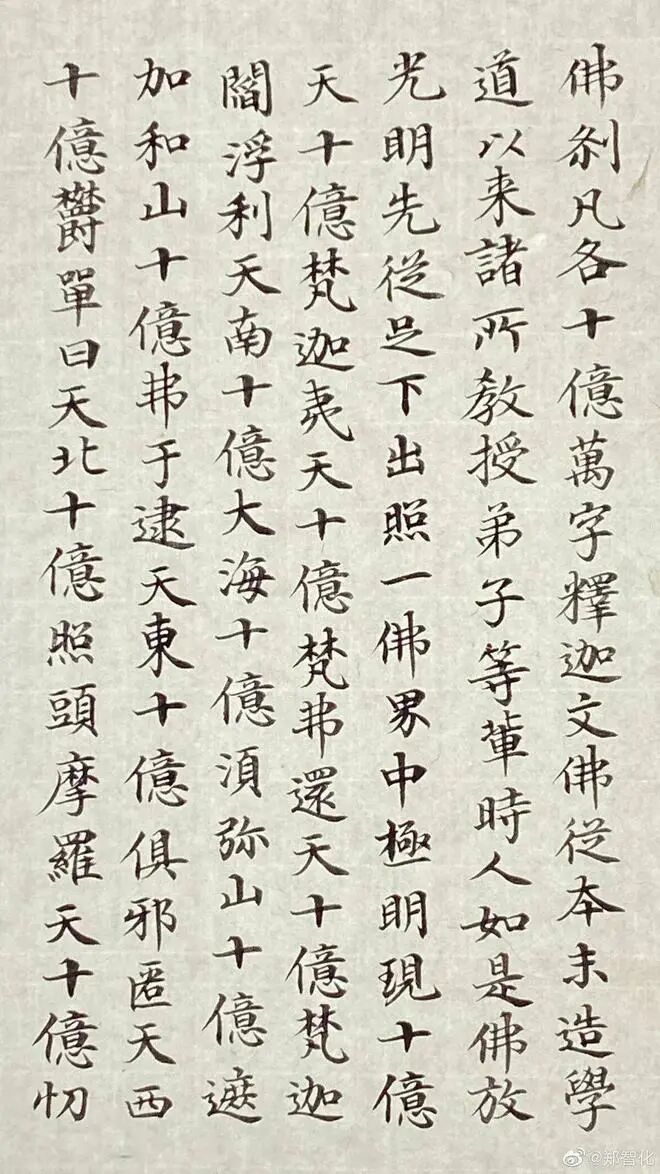 佛刹凡各十億萬字釋迦文佛從本未造學
道以来諸所教授弟子等軰時人如是佛放
光明先從足下出照一佛界中極明現十億
天十億梵迦夷天十億梵弗還天十億梵迦
閻浮利天南十億大海十億湏弥山十億遮
加和山十億弗于逮天東十億俱邪匿天西
十億欝單曰天北十億照頭摩羅天十億忉
@郑智化